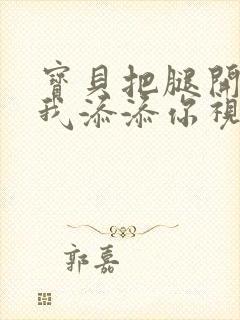 寶貝把腿開
我添添你視
郭嘉